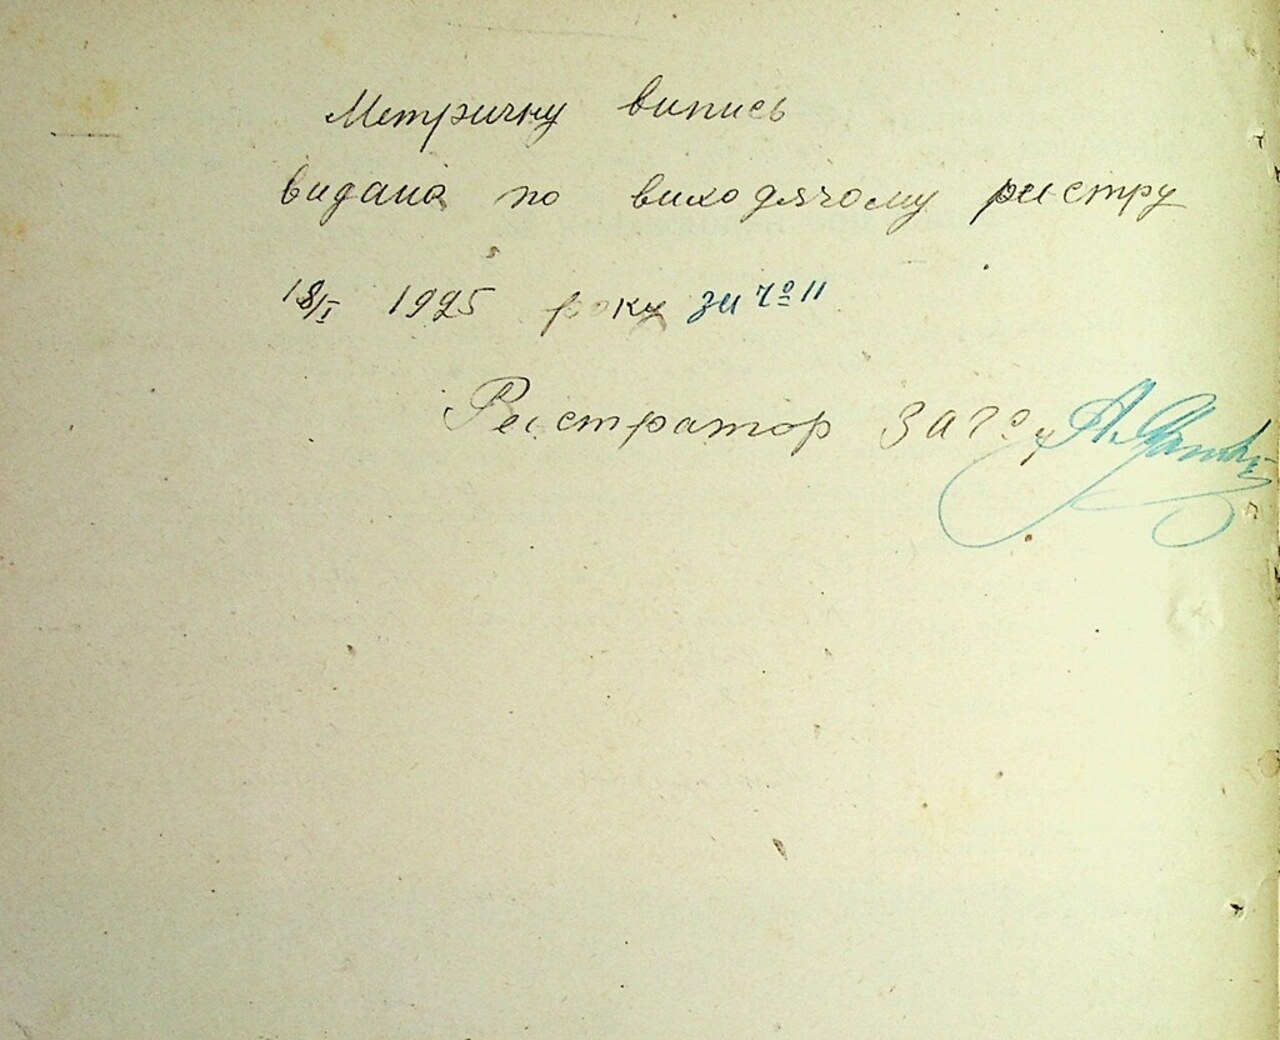 Метричну випись
видана по виходячому реєстру
18/I 1925 року за № 11
Реєстратор ЗАГСу